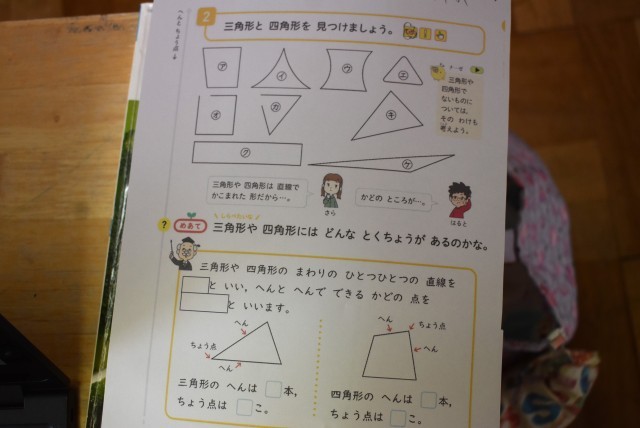 へんと ちょう点
2
三角形と 四角形を 見つけましょう。
ア
イ
ウ
エ
オ
カ
キ
ク
ケ
三角形や
四角形で
ないものに
ついては、
その わけも
考えよう。
三角形や 四角形は 直線で
かこまれた 形だから…。
さら
かどの ところが…。
はると
?
めあて
三角形や 四角形には どんな とくちょうが あるのかな。
三角形や 四角形の まわりの ひとつひとつの 直線を
と いい、へんと へんで できる かどの 点を
と いいます。
へん
ちょう点
へん
三角形の へんは 本、
ちょう点は こ。
へん
ちょう点
へん
四角形の へんは 本、
ちょう点は こ。